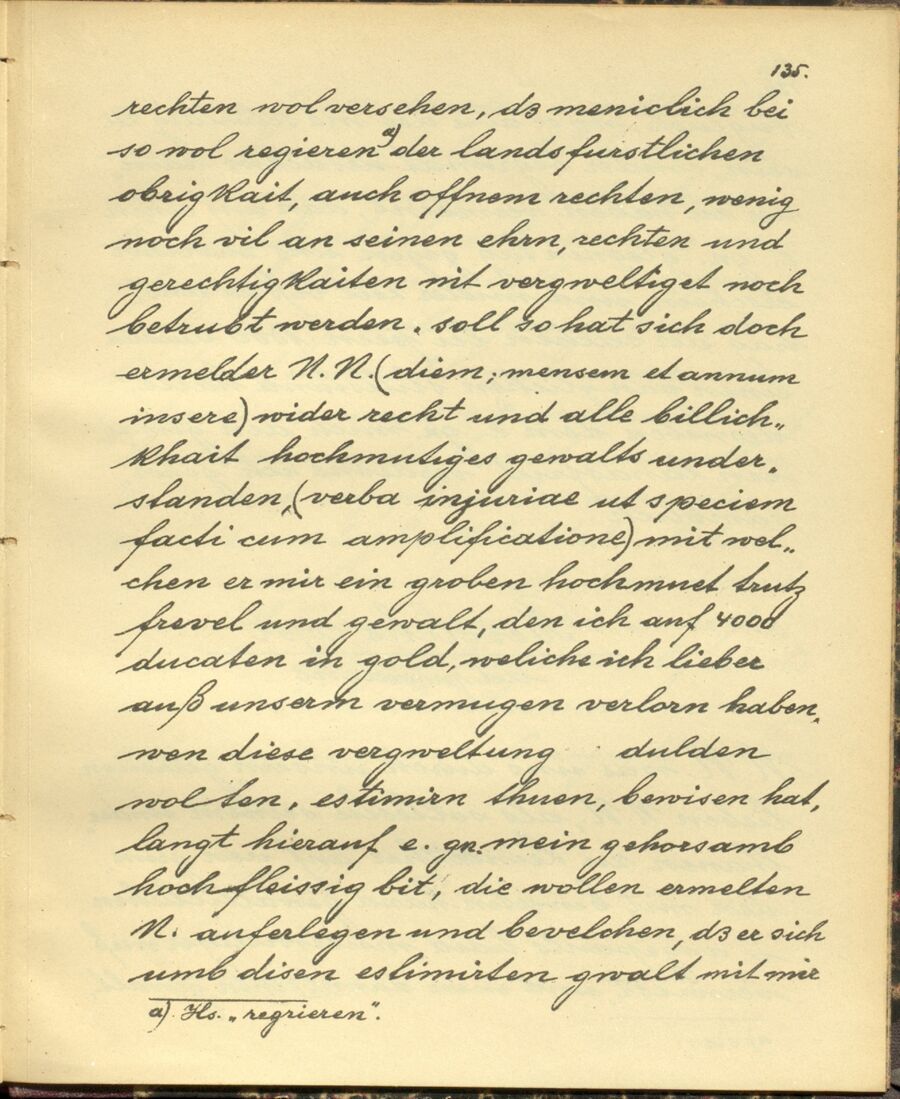 135.
rechten wol versehen, dz meniclich bei
so wol regieren a) der landsfurstlichen
obrigkait, auch offnem rechten, wenig
noch vil an seinen ehrn, rechten und
gerechtigkaiten nit vergweltiget noch
betrubt werden. soll so hat sich doch
ermelder N. N. (diem, mensem et annum
insere) wider recht und alle billich„
khait hochmutiges gewalts under„
standen, (verba injuriae ut speciem
facti cum amplificatione) mit wel„
chen er mir ein groben hochmuet trutz
frevel und gewalt, den ich auf 4000
ducaten in gold, weliche ich lieber
auß unserm vermugen verlorn haben,
wen diese vergweltung dulden
wolten, estimirn thuen, bewisen hat,
langt hierauf e. gn. mein gehorsamb
hochfleissig bit, die wollen ermelten
N. auferlegen und bevelchen, dz er sich
umb disen estimirten gwalt mit mir
a) Hs. „regrieren".